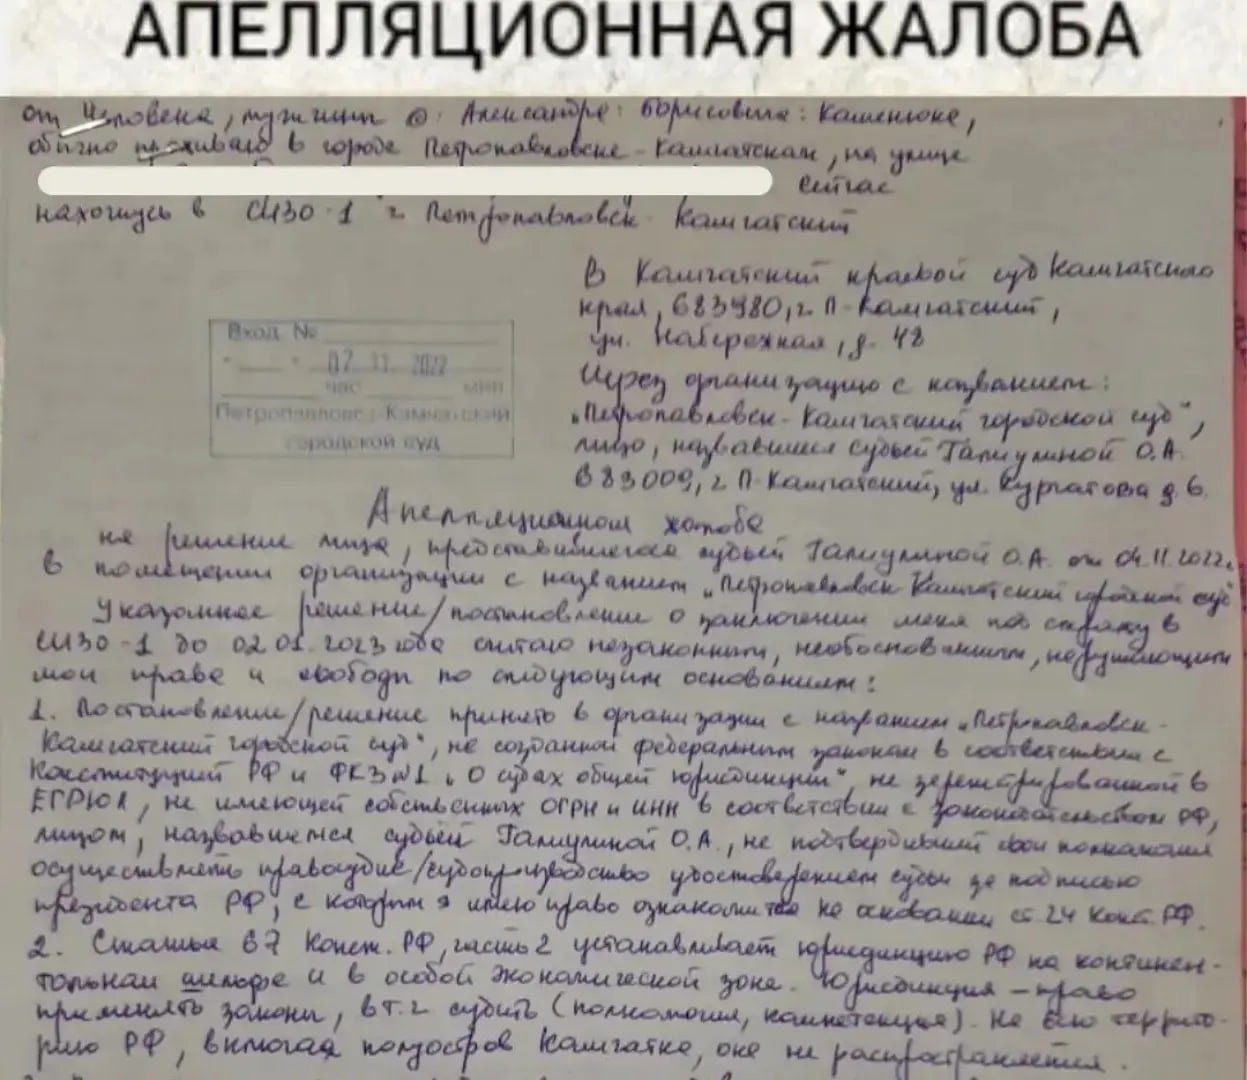 АПЕЛЛЯЦИОННАЯ ЖАЛОБА
от Человека, мужчины ©: Александра: Борисовича: Каменюка,
обычно проживаю в городе Петропавловске-Камчатском, на улице
сейчас
нахожусь в СИЗО-1 г. Петропавловск-Камчатский
В Камчатский краевой суд Камчатского
края, 683980, г. П-Камчатский,
ул. Набережная, д. 48
Через организацию с названием:
"Петропавловск-Камчатский городской суд",
лицо, назвавшееся судьей Галиулиной О.А.
683009, г. П-Камчатский, ул. Курчатова д. 6.
Вход. №
07 11 2022
час мин
Петропавловск-Камчатский
городской суд
Апелляционная жалоба
на решение лица, представившегося судьей Галиулиной О.А. от 04.11.2022г.
в помещении организации с названием "Петропавловск-Камчатский городской суд"
Указанное решение/постановление о заключении меня под стражу в
СИЗО-1 до 02.01.2023 года считаю незаконным, необоснованным, нарушающим
мои права и свободы по следующим основаниям:
1. Постановление/решение принято в организации с названием "Петропавловск-
Камчатский городской суд", не созданной федеральным законом в соответствии с
Конституцией РФ и ФКЗ №1 "О судах общей юрисдикции", не зарегистрированной в
ЕГРЮЛ, не имеющей собственных ОГРН и ИНН в соответствии с законодательством РФ,
лицом, назвавшемся судьей Галиулиной О.А., не подтвердившей свои полномочия
осуществлять правосудие/судопроизводство удостоверением судьи за подписью
президента РФ, с которым я имею право ознакомиться на основании ст. 24 Конст. РФ.
2. Статья 67 Конст. РФ, часть 2 устанавливает юрисдикцию РФ на континен-
тальном шельфе и в особой экономической зоне. Юрисдикция – право
применять законы, в т.ч. судить (полномочия, компетенция). На всю террито-
рию РФ, включая полуостров Камчатка, она не распространяется.